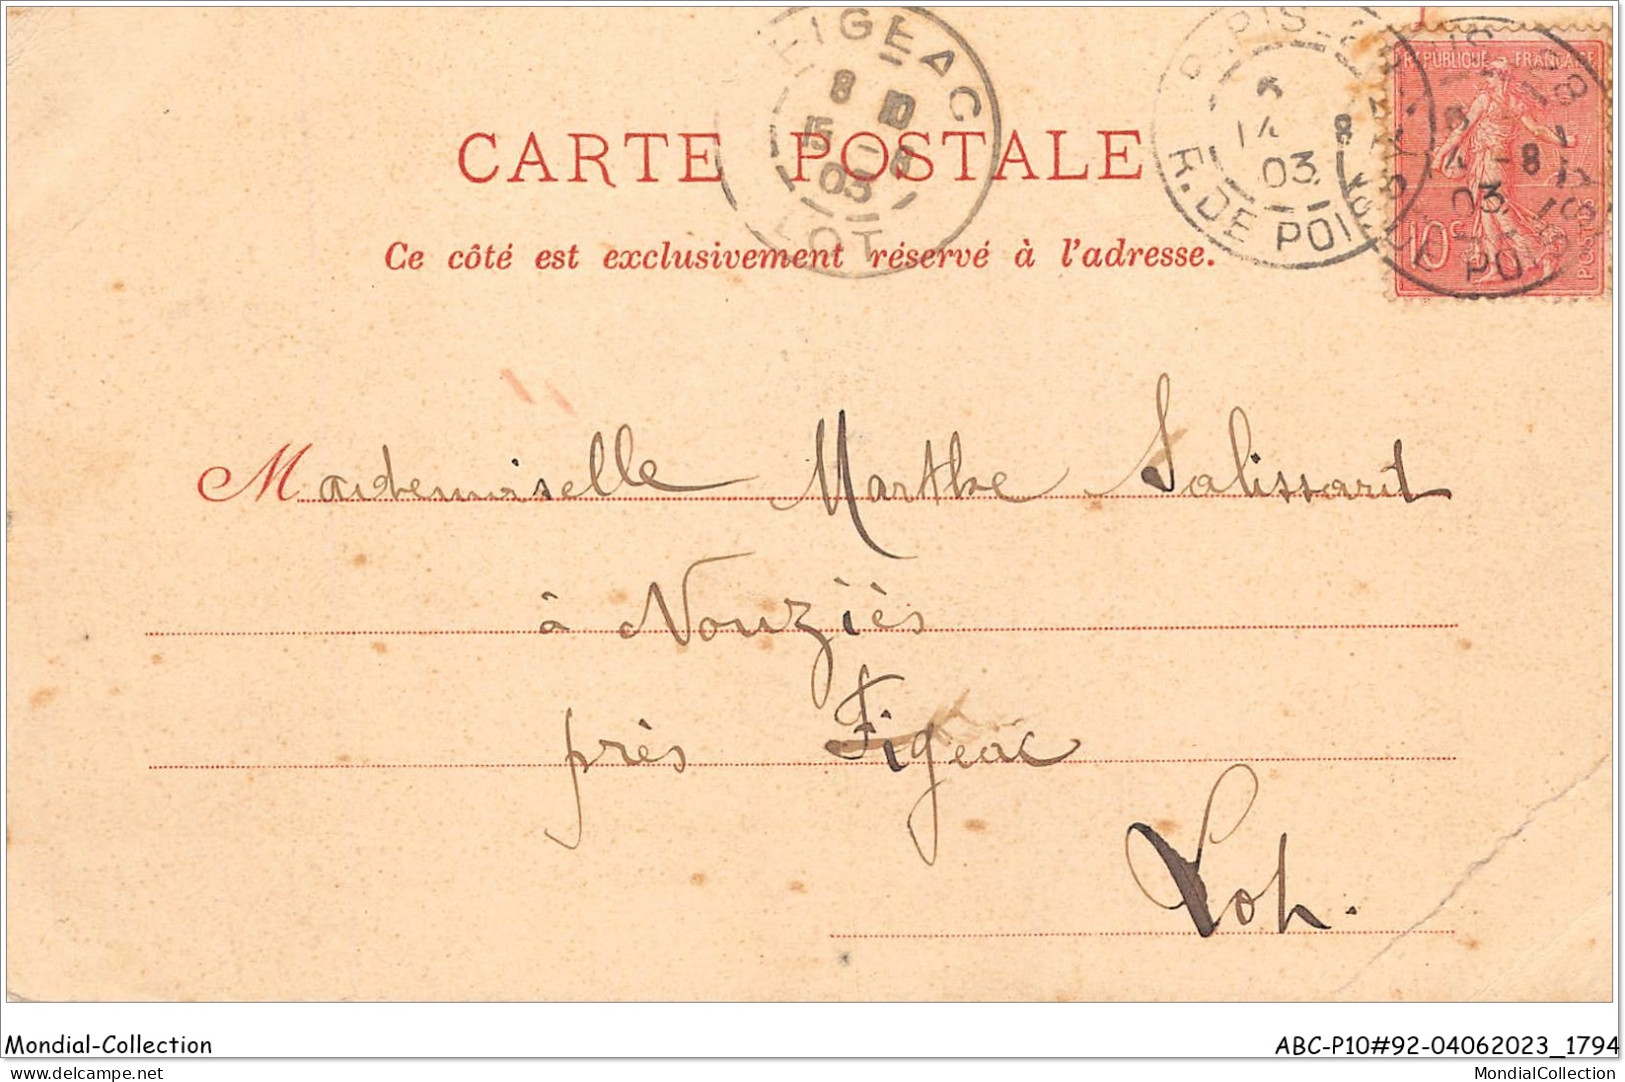 FIGEAC
8 10
15 -8
03
LOT
R. DE POI
14 8
03
REPUBLIQUE FRANÇAISE
-8
03
10c
POSTES
CARTE POSTALE
Ce côté est exclusivement réservé à l'adresse.
Mademoiselle Marthe Salissard
à Nouziès
près Figeac
Lot.
Mondial-Collection
ABC-P10#92-04062023_1794
delcampe.net
MondialCollection